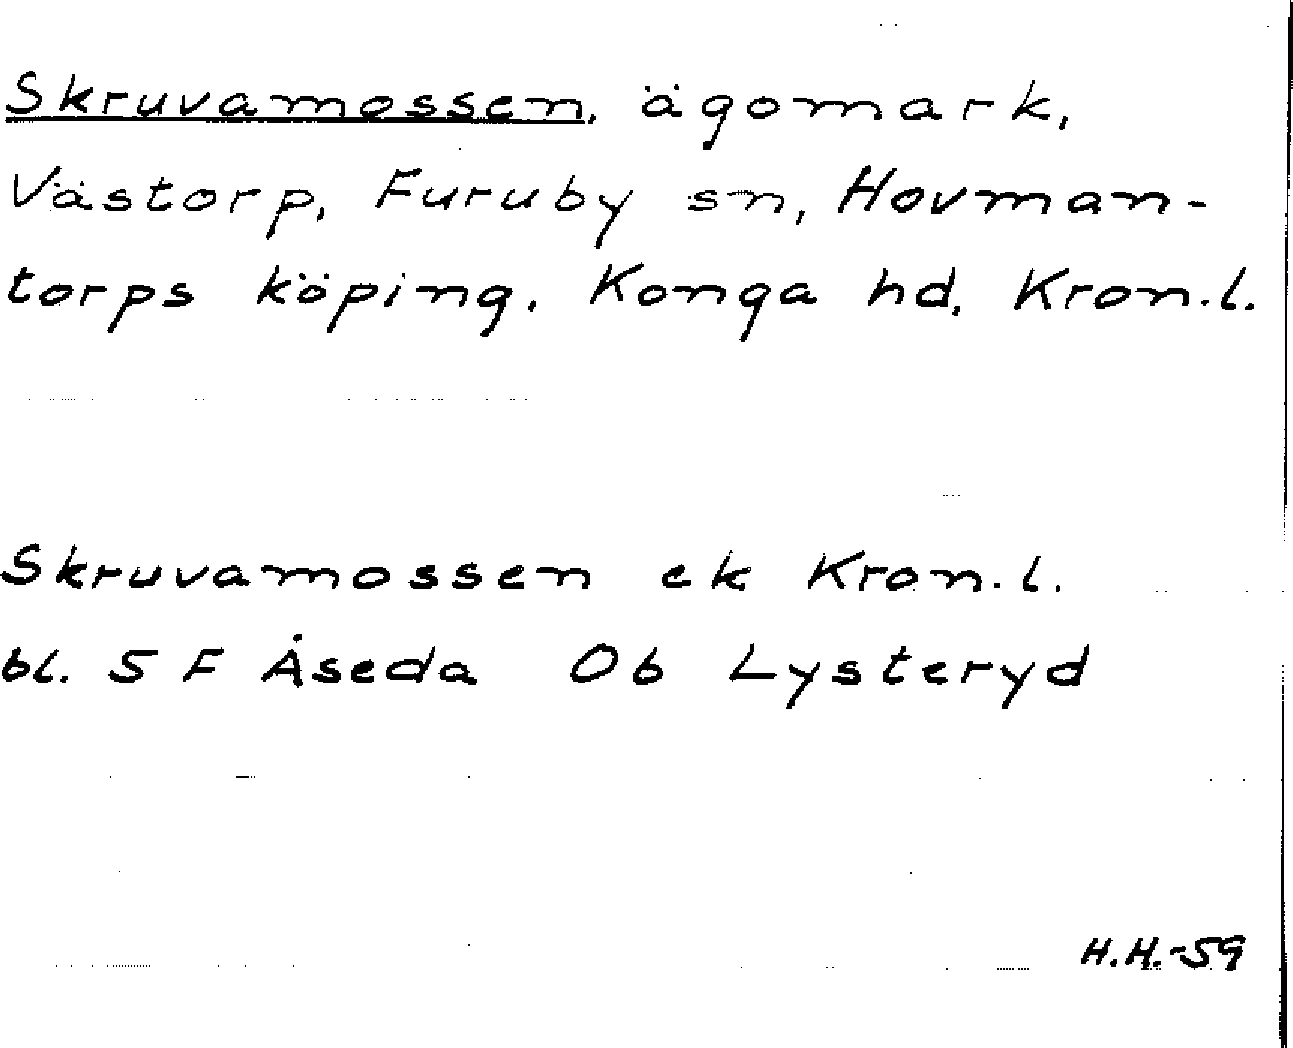 Skruvamossen, ägomark,
Västorp, Furuby sn, Hovman-
torps köping, Konga hd, Kron.l.
Skruvamossen ek Kron.l.
bl. 5 F Åseda Ob Lysteryd
H.H.-59